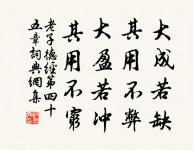 大成若缺
其用不弊
大盈若冲
其用不窮
老子德經第四十
五章詞典網集